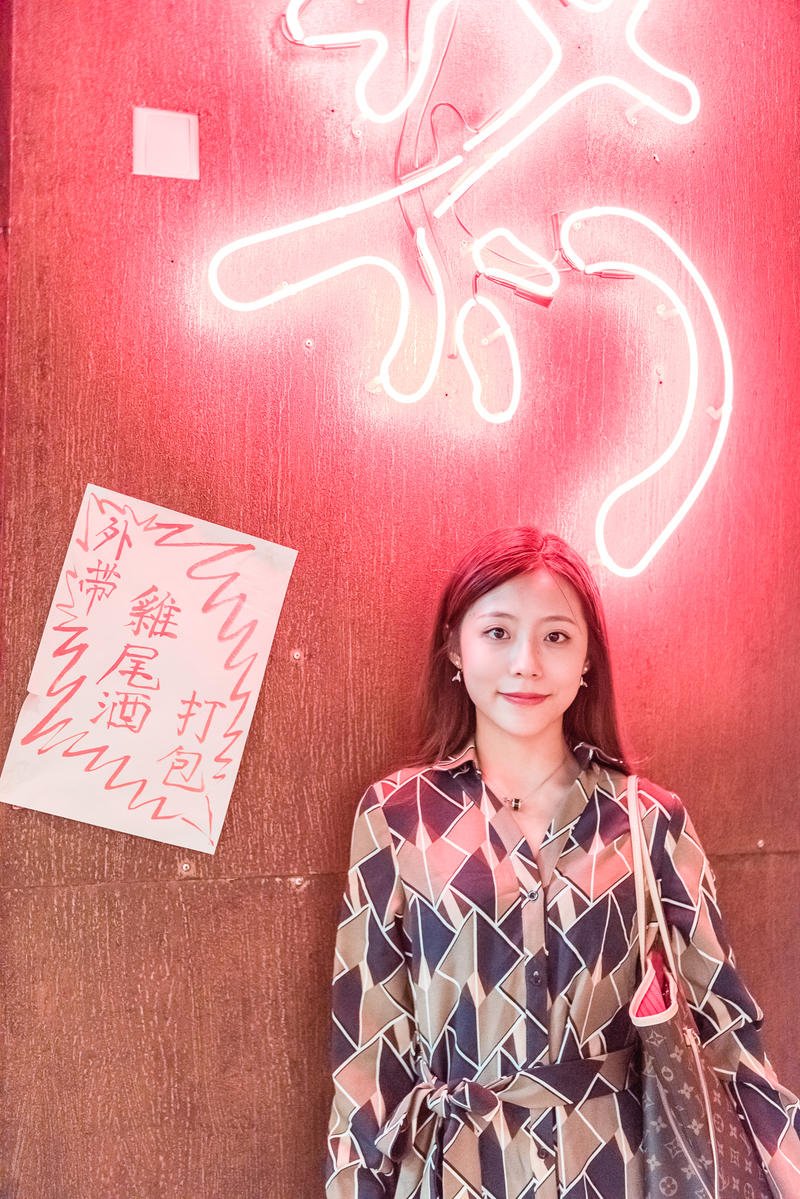 外带
雞尾酒
打包